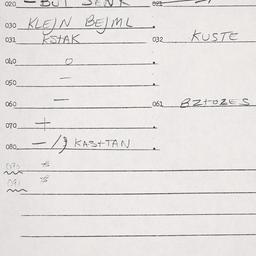 020 — BUT SENK 021
030 KLEJN BEJML
031 KSTAK 032 KUSTE
040 O
050 —
060 — 061 BZTOZES
070 +
080 — /) KASTTAN
*
*